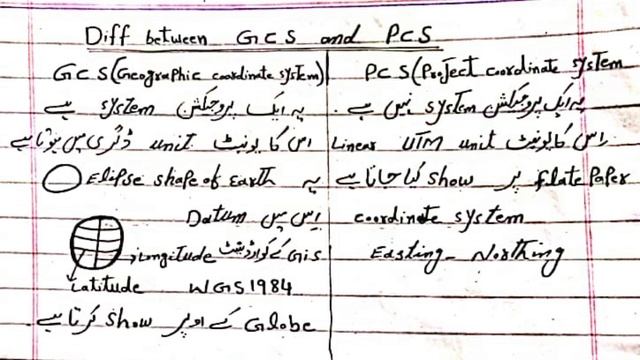 Diff between GCS and PCS
GCS (Geographic coordinate system)
یہ ایک پروجکشن system ہے
اس کا یونیٹ unit ڈگری میں ہوتا ہے
یہ Elipse shape of Earth
اس میں Datum
GIS کے کوارڈینٹ Longitude,
Latitude WGS1984
Globe کے اوپر show کرتا ہے۔
PCS (Project coordinate system
یہ ایک پروجیکشن system نہیں ہے۔
اس کا یونیٹ unit UTM Linear
Flate Paper پر show کیا جاتا ہے
coordinate system
Easting - Northing